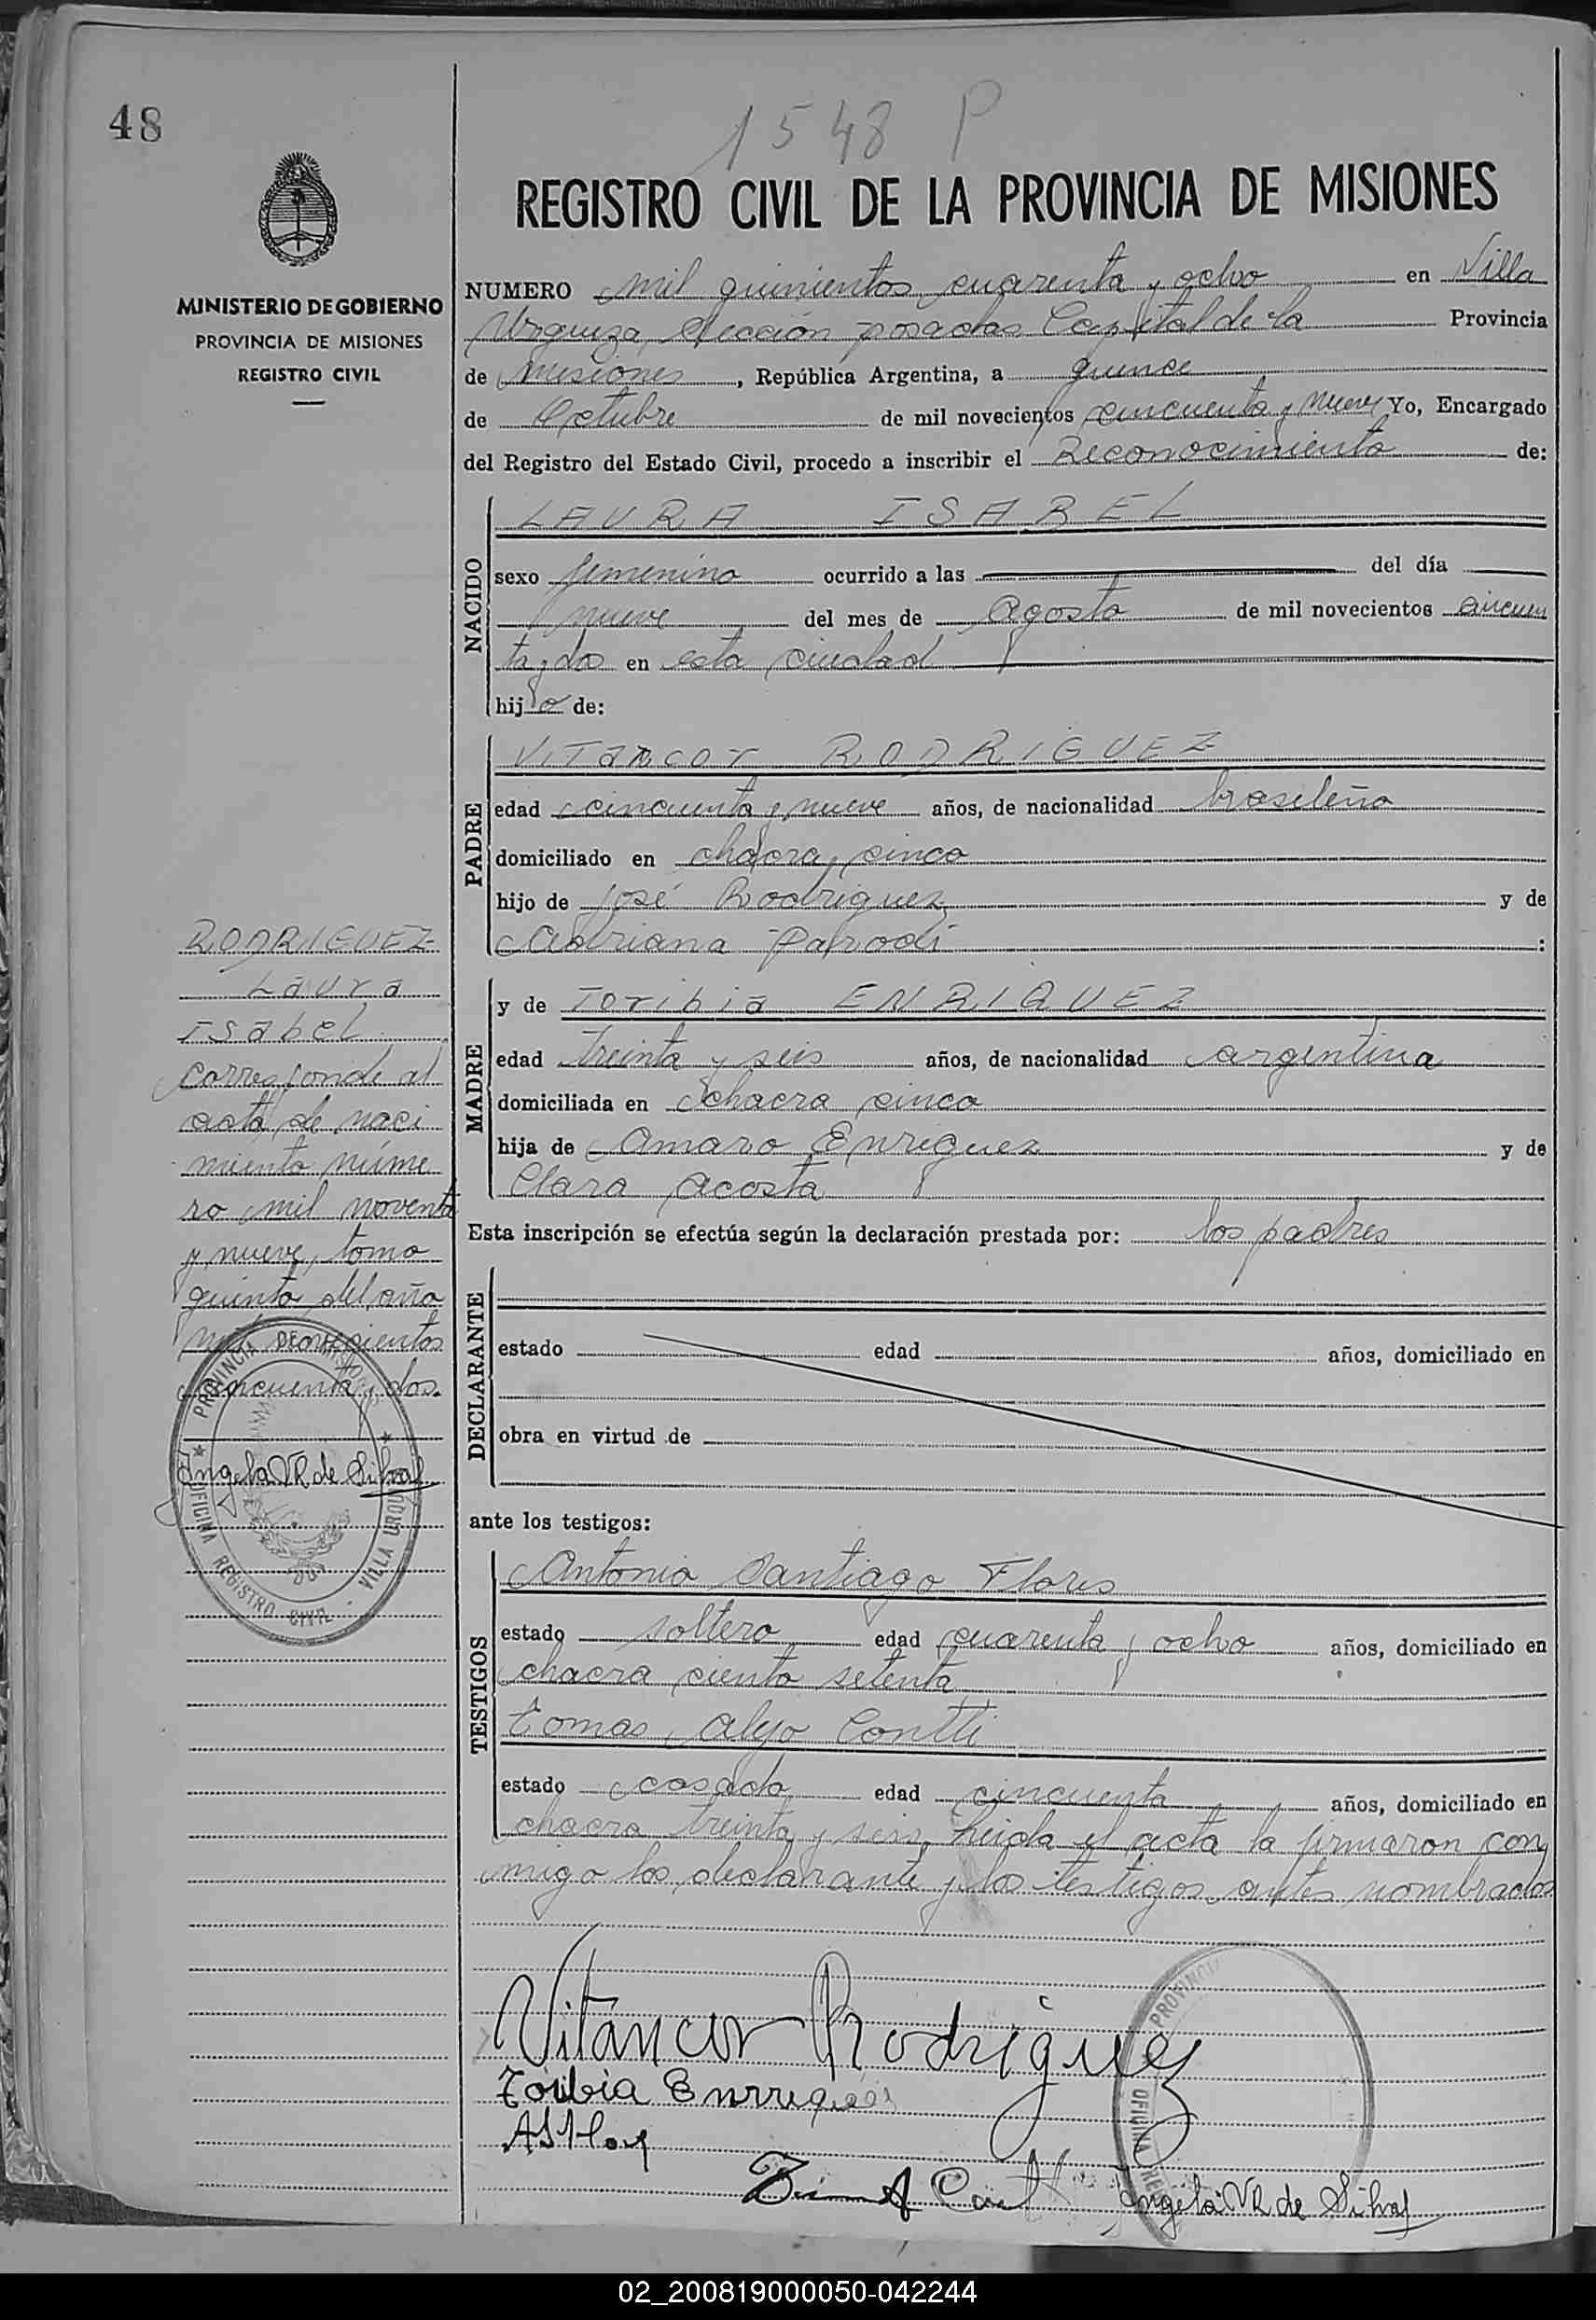 48
1548 P
MINISTERIO DE GOBIERNO
PROVINCIA DE MISIONES
REGISTRO CIVIL
REGISTRO CIVIL DE LA PROVINCIA DE MISIONES
NUMERO mil quinientos cuarenta y ocho en Villa
Urquiza, Sección posadas Capital de la Provincia
de Misiones, República Argentina, a quince
de Octubre de mil novecientos cincuenta y nueve Yo, Encargado
del Registro del Estado Civil, procedo a inscribir el Reconocimiento de:
NACIDO
LAURA ISABEL
sexo femenino ocurrido a las del día
nueve del mes de Agosto de mil novecientos cincuen
ta y dos en esta ciudad
hija de:
PADRE
VITANCOR RODRIGUEZ
edad cincuenta y nueve años, de nacionalidad brasileña
domiciliado en chacra cinco
hijo de José Rodriguez y de
Adriana Parodi :
MADRE
y de Toribia ENRIQUEZ
edad treinta y seis años, de nacionalidad argentina
domiciliada en chacra cinco
hija de Amaro Enriquez y de
Clara Acosta
Esta inscripción se efectúa según la declaración prestada por: los padres
DECLARANTE
estado edad años, domiciliado en
obra en virtud de
ante los testigos:
TESTIGOS
Antonio Santiago Flores
estado soltero edad cuarenta y ocho años, domiciliado en
chacra ciento setenta
tomas Alejo Contti
estado casado edad cincuenta años, domiciliado en
chacra treinta y seis, leida el acta la firmaron con
migo los declarante y los testigos antes nombrados
RODRIGUEZ
Laura
Isabel
corresponde al
acta de naci
miento núme
ro mil noventa
y nueve, tomo
quinto del año
mil novecientos
cincuenta y dos.
Angela VR de Silva
PROVINCIA DE MISIONES
OFICINA REGISTRO CIVIL - VILLA URQU
Vitancor Rodriguez
Toribia Enrriquez
Angela VR de Silva
PROVINCIA
OFICINA RE
02_200819000050-042244